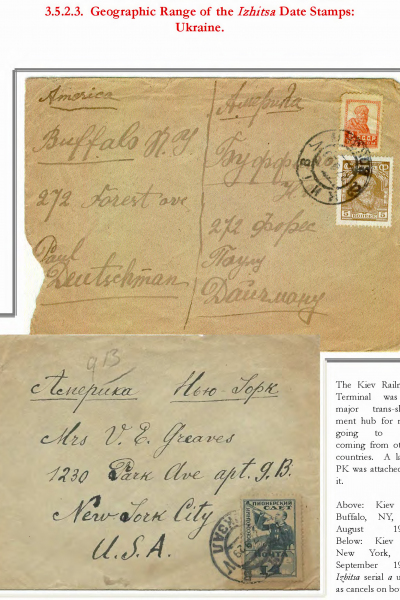 3.5.2.3. Geographic Range of the Izhitsa Date Stamps:
Ukraine.
America
Buffalo N.Y.
272 Forest ave
Paul
Deutschman
Америка
Буффа
Н
272 Форес
Паулу
Дайчману
КИЇВ
5 5
913
Америка Нью-Іорк
Mrs V. E. Greaves
1230 Park Ave apt. 9.B.
New York City
U.S.A.
ПИОНЕРСКИЙ
СЛЕТ
ПОЧТА
14
The Kiev Railw
Terminal was
major trans-sh
ment hub for m
going to
coming from ot
countries. A la
PK was attached
it.
Above: Kiev
Buffalo, NY,
August 19
Below: Kiev
New York,
September 19
Izhitsa serial a u
as cancels on bo